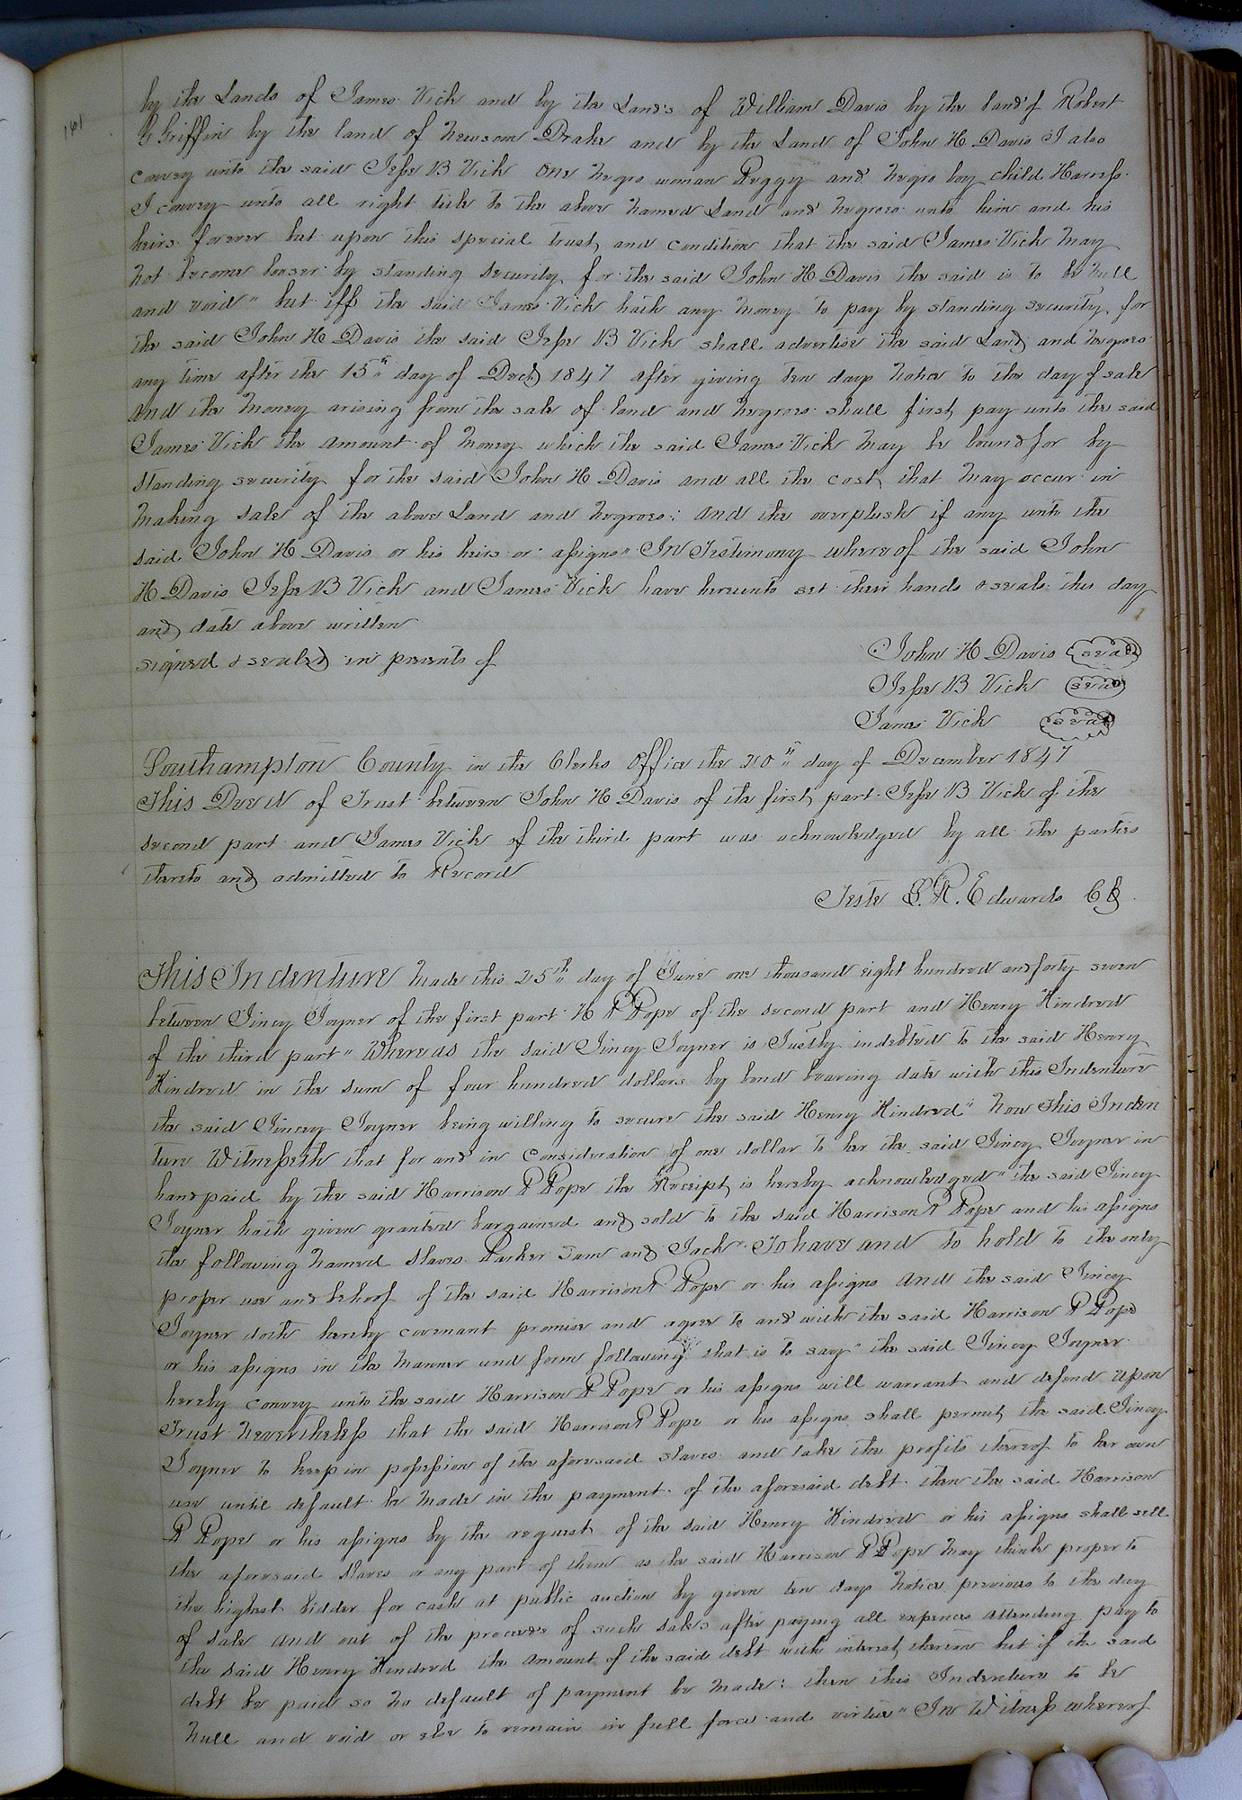 141
by the Lands of James Vick and by the Lands of William Davis by the land of Robert
G Griffin by the land of Newsom Drake and by the Land of John H Davis I also
convey unto the said Jesse B Vick one negro woman Peggy and negro boy child Harress.
I convey unto all right title to the above named Land and negroes unto him and his
heirs forever but upon this special trust and condition that the said James Vick may
not become looser by standing security for the said John H Davis the said is to be null
and void" but iff the said James Vick hath any money to pay by standing security for
the said John H Davis the said Jesse B Vick shall advertise the said Land and negroes
any time after the 15th day of Decd 1847 after giving ten days notice to the day of sale
and the money arising from the sale of land and negroes shall first pay unto the said
James Vick the amount of money which the said James Vick may be bound for by
standing security for the said John H Davis and all the cost that may occur in
making sale of the above Land and negroes: and the overplush if any unto the
said John H Davis or his heirs or assigns" In Testimony whereof the said John
H Davis Jesse B Vick and James Vick have hereunto set their hands & seals this day
and date above written
signed & sealed in presents of
John H Davis seal
Jesse B Vick seal
James Vick seal
Southampton County in the Clerks Office the 20th day of December 1847
This Deed of Trust between John H Davis of the first part Jesse B Vick of the
second part and James Vick of the third part was acknowledged by all the parties
thereto and admitted to Record
Teste L. R. Edwards CC
This Indenture made this 25th day of June one thousand eight hundred and forty seven
between Jincy Joyner of the first part H P Pope of the second part and Henry Kindred
of the third part" Whereas the said Jincy Joyner is Justly indebted to the said Henry
Kindred in the sum of four hundred dollars by bond bearing date with this Indenture
the said Jincey Joyner being willing to secure the said Henry Kindred" Now this Inden
ture Witnesseth that for and in consideration of one dollar to her the said Jincy Joyner in
hand paid by the said Harrison P Pope the Receipt is hereby acknowledged" the said Jincy
Joyner hath given granted bargained and sold to the said Harrison P Pope and his assigns
the following named slaves Parker Sam and Jack" To have and to hold to the only
proper use and behoof of the said Harrison P Pope or his assigns and the said Jincy
Joyner doth hereby covenant promise and agree to and with the said Harrison P Pope
or his assigns in the manner und form following that is to say" the said Jincy Joyner
hereby convey unto the said Harrison P Pope or his assigns will warrant and defend upon
Trust nevertheless that the said Harrison P Pope or his assigns shall permit the said Jincy
Joyner to keep in possession of the aforesaid slaves and take the profits thereof to her own
use until default be made in the payment of the aforesaid debt then the said Harrison
P Pope or his assigns by the request of the said Henry Kindred or his assigns shall sell
the aforesaid slaves or any part of them as the said Harrison P Pope may think proper to
the highest bidder for cash at public auction by given ten days notice previous to the day
of sale and out of the proceeds of such sales after paying all expences attending pay to
the said Henry Kindred the amount of the said debt with interest thereon but if the said
debt be paid so no default of payment be made: then this Indenture to be
null and void or else to remain in full force and virtue" In Witness whereof